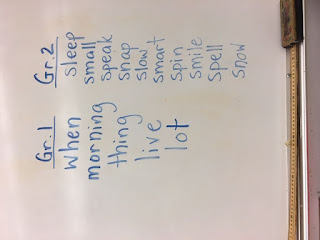 Gr. 1
when
morning
thing
live
lot
Gr. 2
sleep
small
speak
snap
slow
smart
spin
smile
spell
snow